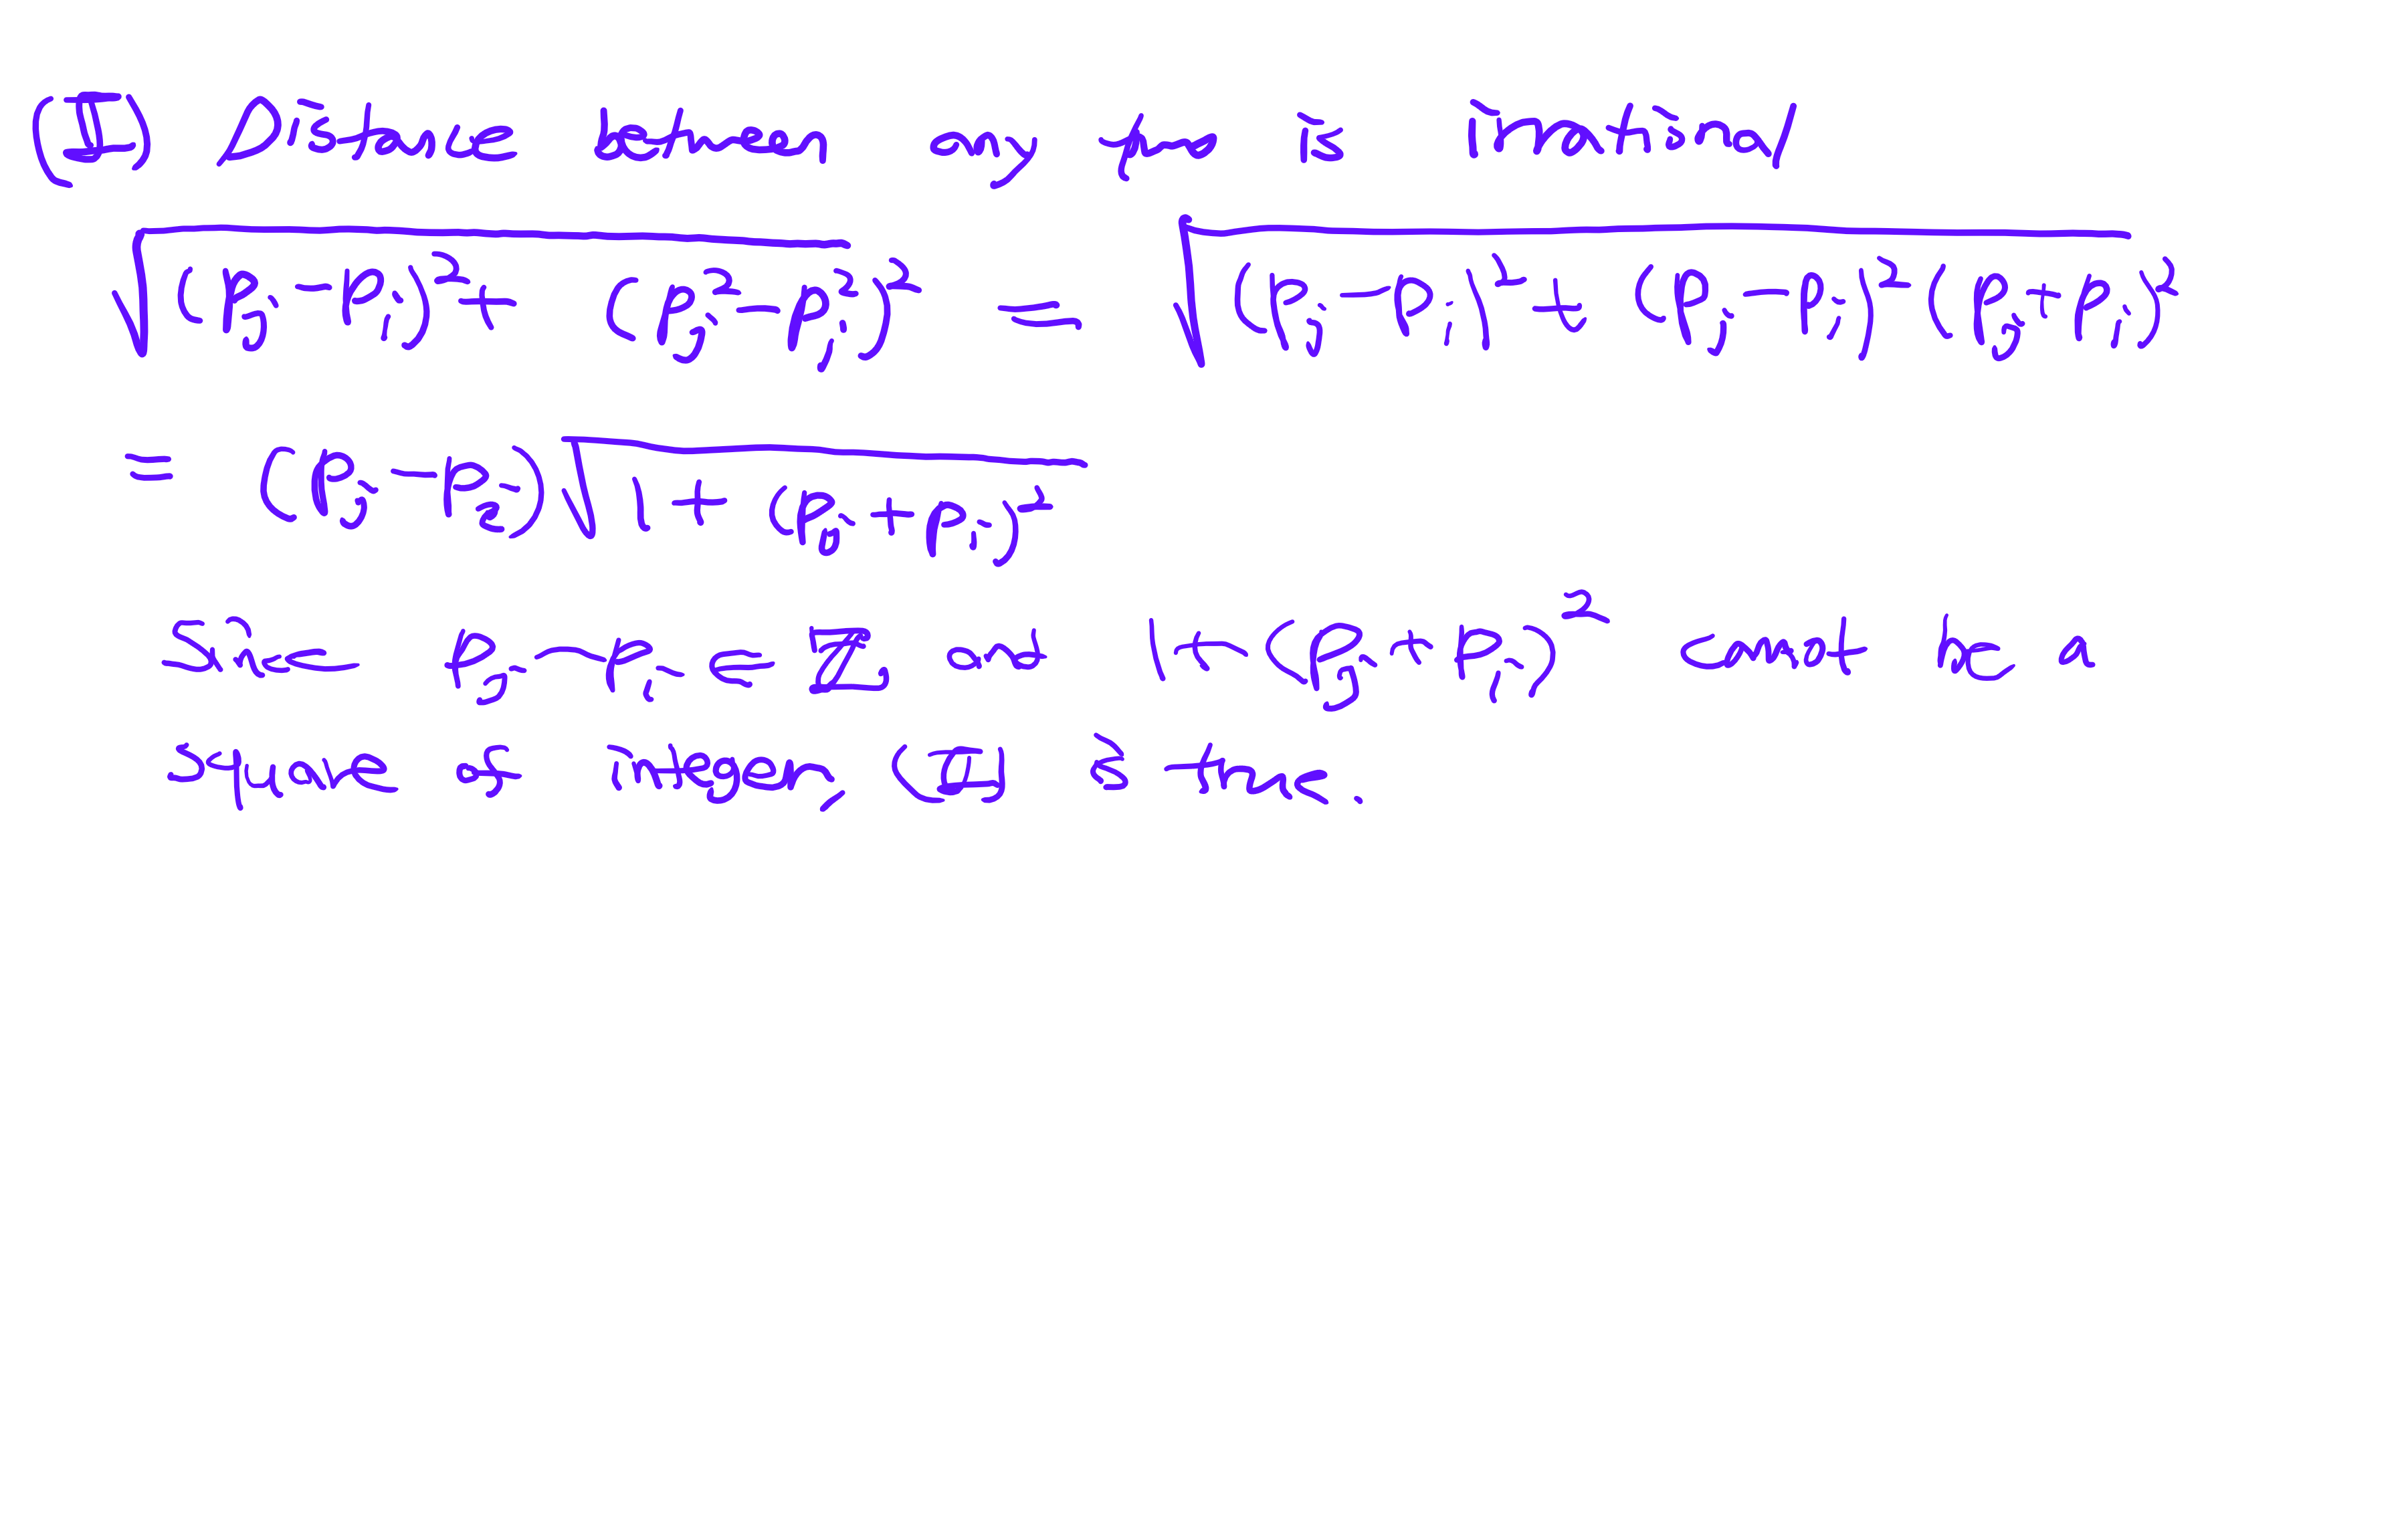 (I) Distance between any two is irrational
√((P_j - P_i)² + (P_j² - P_i²)²) = √((P_j - P_i)² + (P_j - P_i)² (P_j + P_i)²)
= (P_j - P_i) √(1 + (P_j + P_i)²)
Since P_j - P_i ∈ ℤ, and 1 + (P_j + P_i)² cannot be a
square of integer, (I) is true.